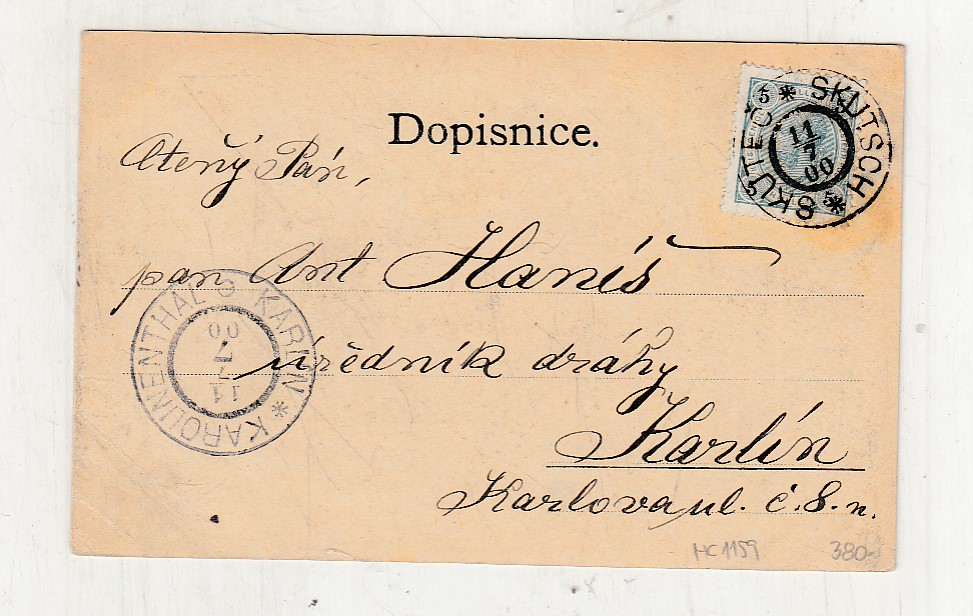 Dopisnice.
SKUTSCH * SKUTEČ *
11
7
00
5
5
Ctěný Pán,
pan Ant Haniš
úředník dráhy
Karlín
Karlova ul. č. 8. n.
KARLÍN * KAROLINENTHAL
11
7
00
HC1159
380-